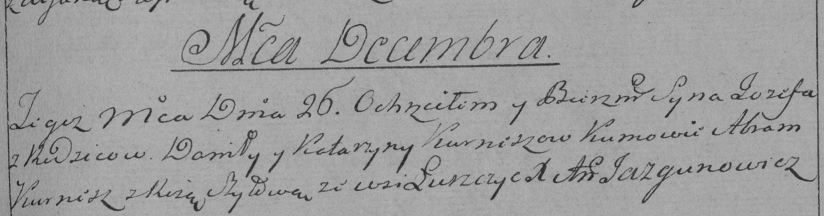 Mca Decembra.
Tegoz Mca Dnia 26. Ochrzciłem y Bierzm Syna Jozefa
z Rodzicow. Daniły y Katarzyny Kurniszow Kumowie Abram
Kurnisz z ze wsi Łuszczyc X An Jazgunowicz